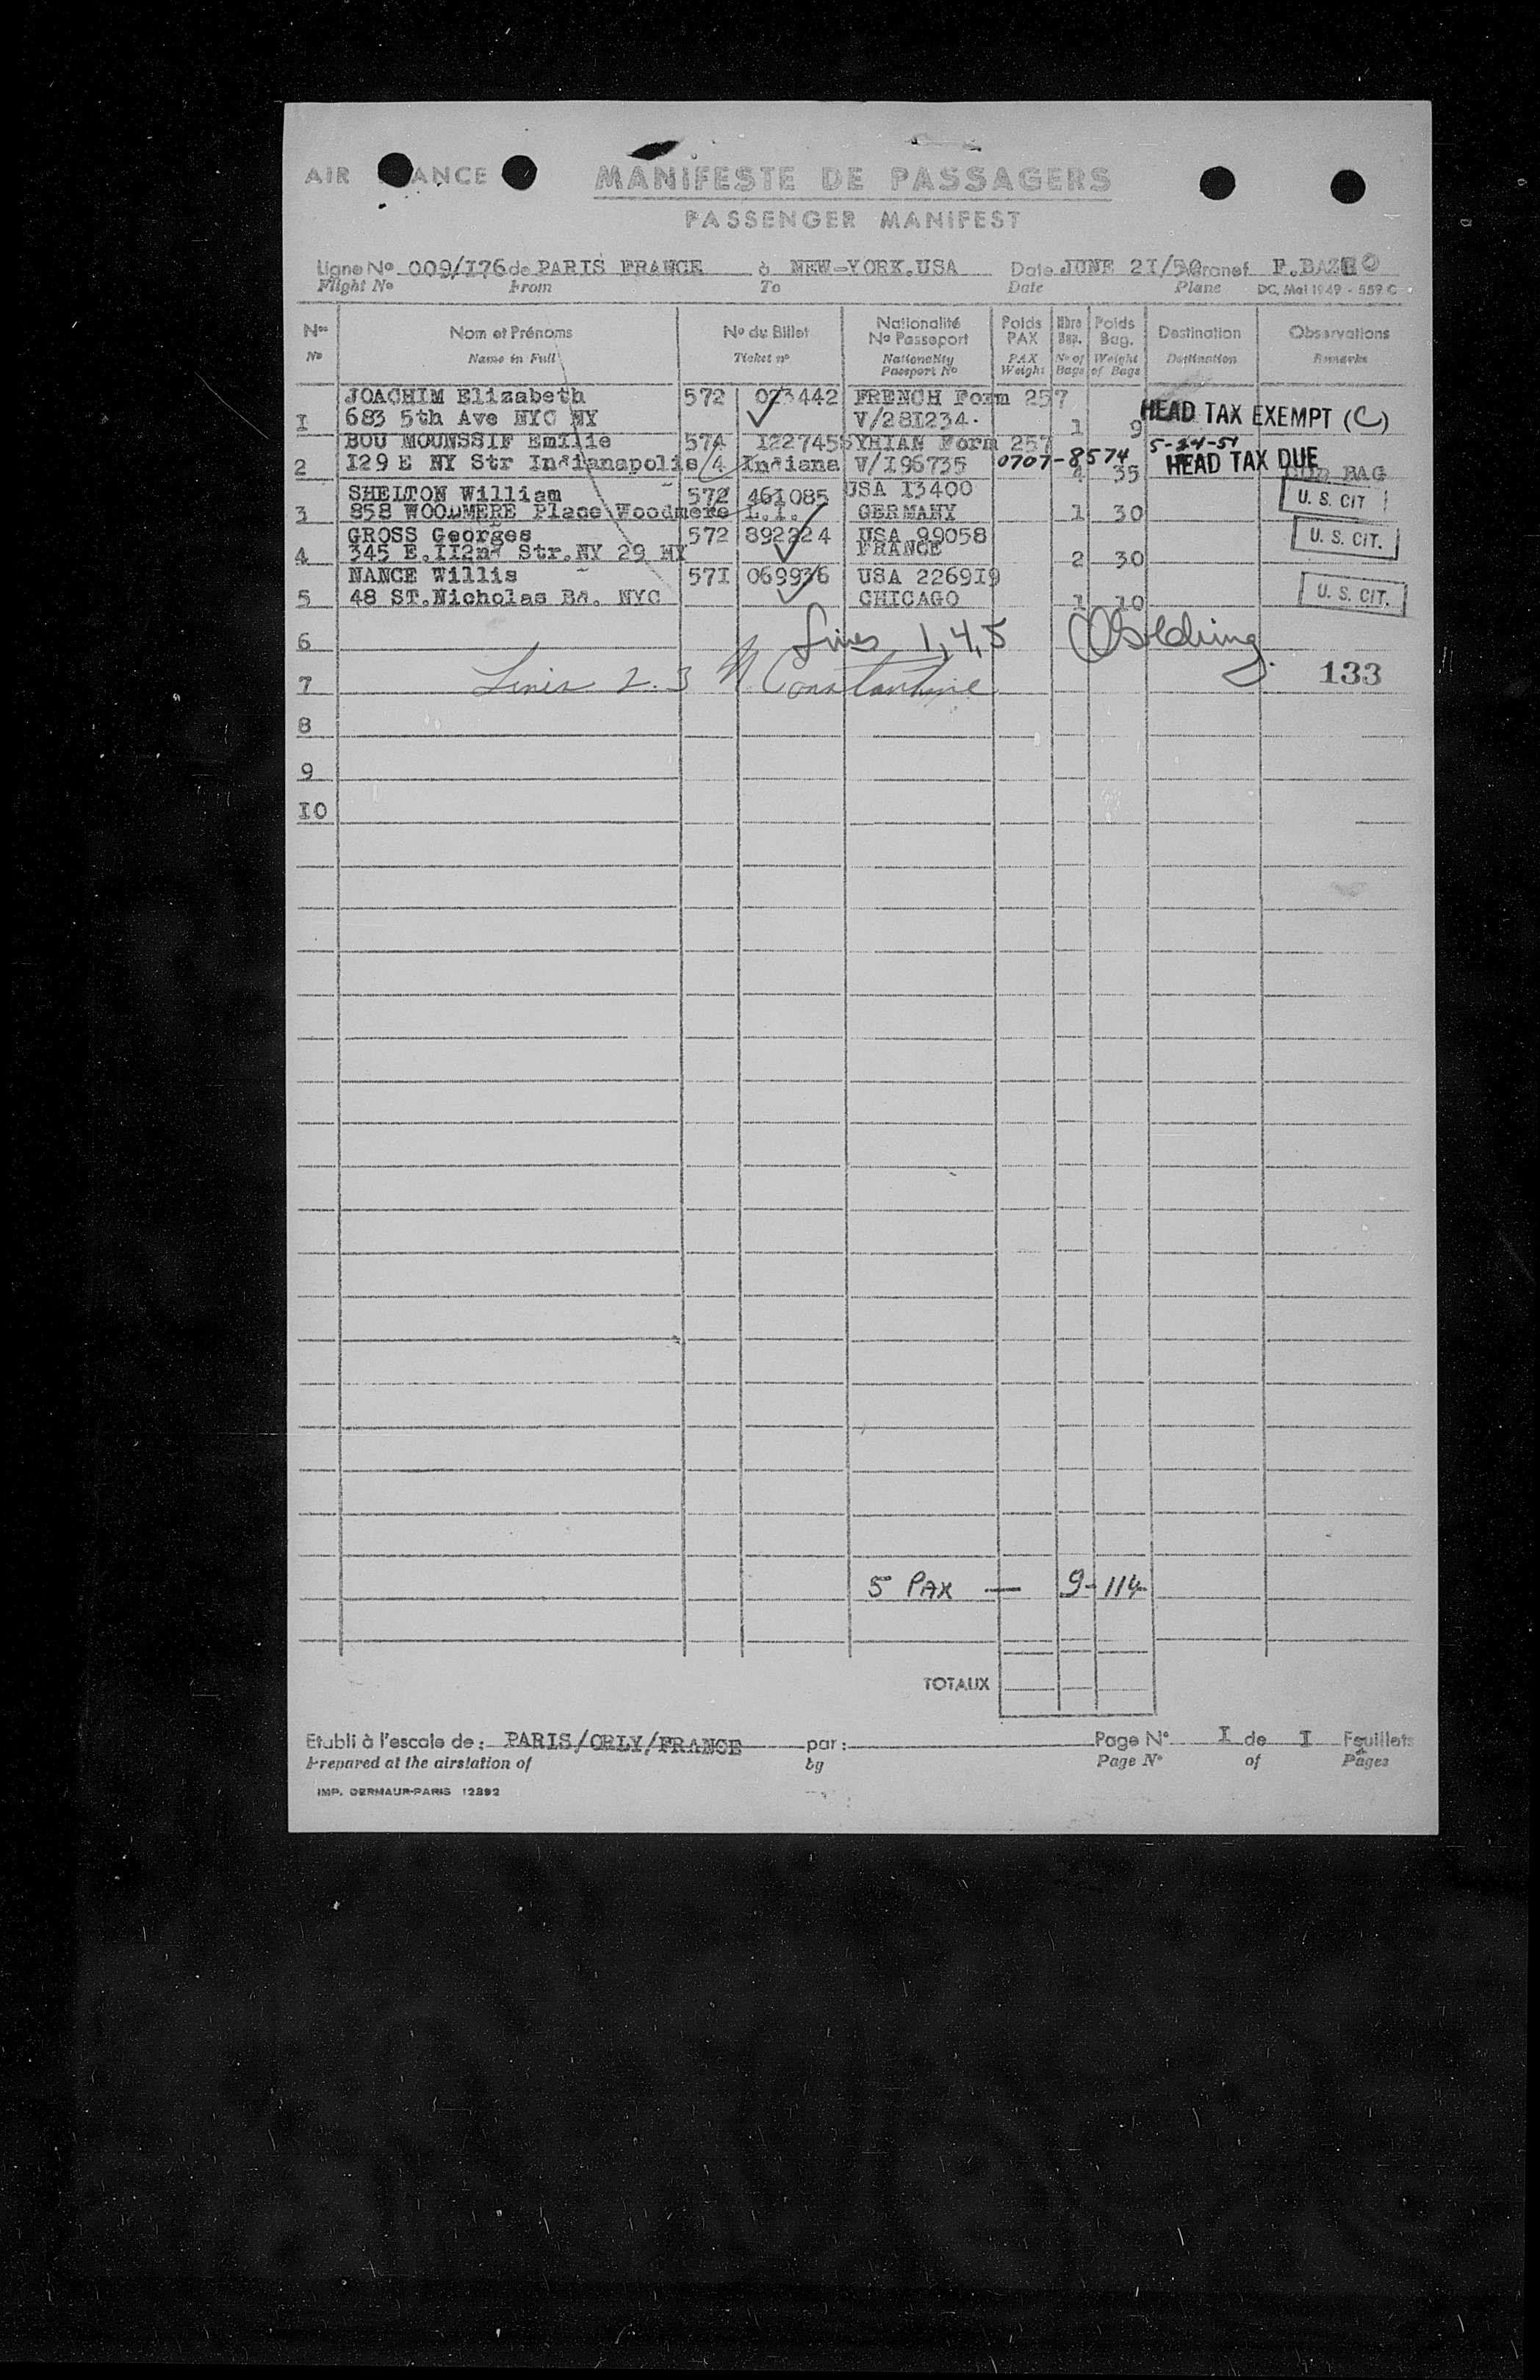 AIR ANCE
MANIFESTE DE PASSAGERS
PASSENGER MANIFEST
Ligne Nº 009/I76 de PARIS FRANCE à NEW-YORK.USA Date JUNE 2I/50 F.BAZ
Flight Nº From To Date Plane DC, Mai 1949 - 559 C
Nos Nom et Prénoms Nº du Billet Nationalité Nº Passeport Poids PAX Nbre Bag. Poids Bag. Destination Observations
Nº Name in Full Ticket nº Nationality Passport Nº PAX Weight Nº of Bags Weight of Bags Destination Remarks
JOACHIM Elizabeth 572 023442 FRENCH Form 257
I 683 5th Ave NYC NY V/28I234. 1 9 HEAD TAX EXEMPT (C)
BOU MOUNSSIF Emilie 574 I22745 SYRIAN Form 257 5-24-51
2 I29 E NY Str Indianapolis/4 Indiana V/I96735 0707-8574 4 35 HEAD TAX DUE BAG
SHELTON William 572 461085 USA I3400
3 858 WOODMERE Place Woodmere L.I. GERMANY 1 30 U. S. CIT
GROSS Georges 572 892224 USA 99058
4 345 E.II2nd Str.NY 29 NY FRANCE 2 30 U. S. CIT.
NANCE Willis 57I 069936 USA 2269I9
5 48 ST.Nicholas Bd. NYC CHICAGO 1 10 U. S. CIT.
6 Lines 1,4,5 Golding
7 Lines 2.3 N Constantine 133
8
9
I0
5 PAX — 9-114-
TOTAUX
Etabli à l'escale de: PARIS/ORLY/FRANCE par: Page Nº I de I Feuillets
Prepared at the airstation of by Page Nº of Pages
IMP. DERMAUR-PARIS 12892